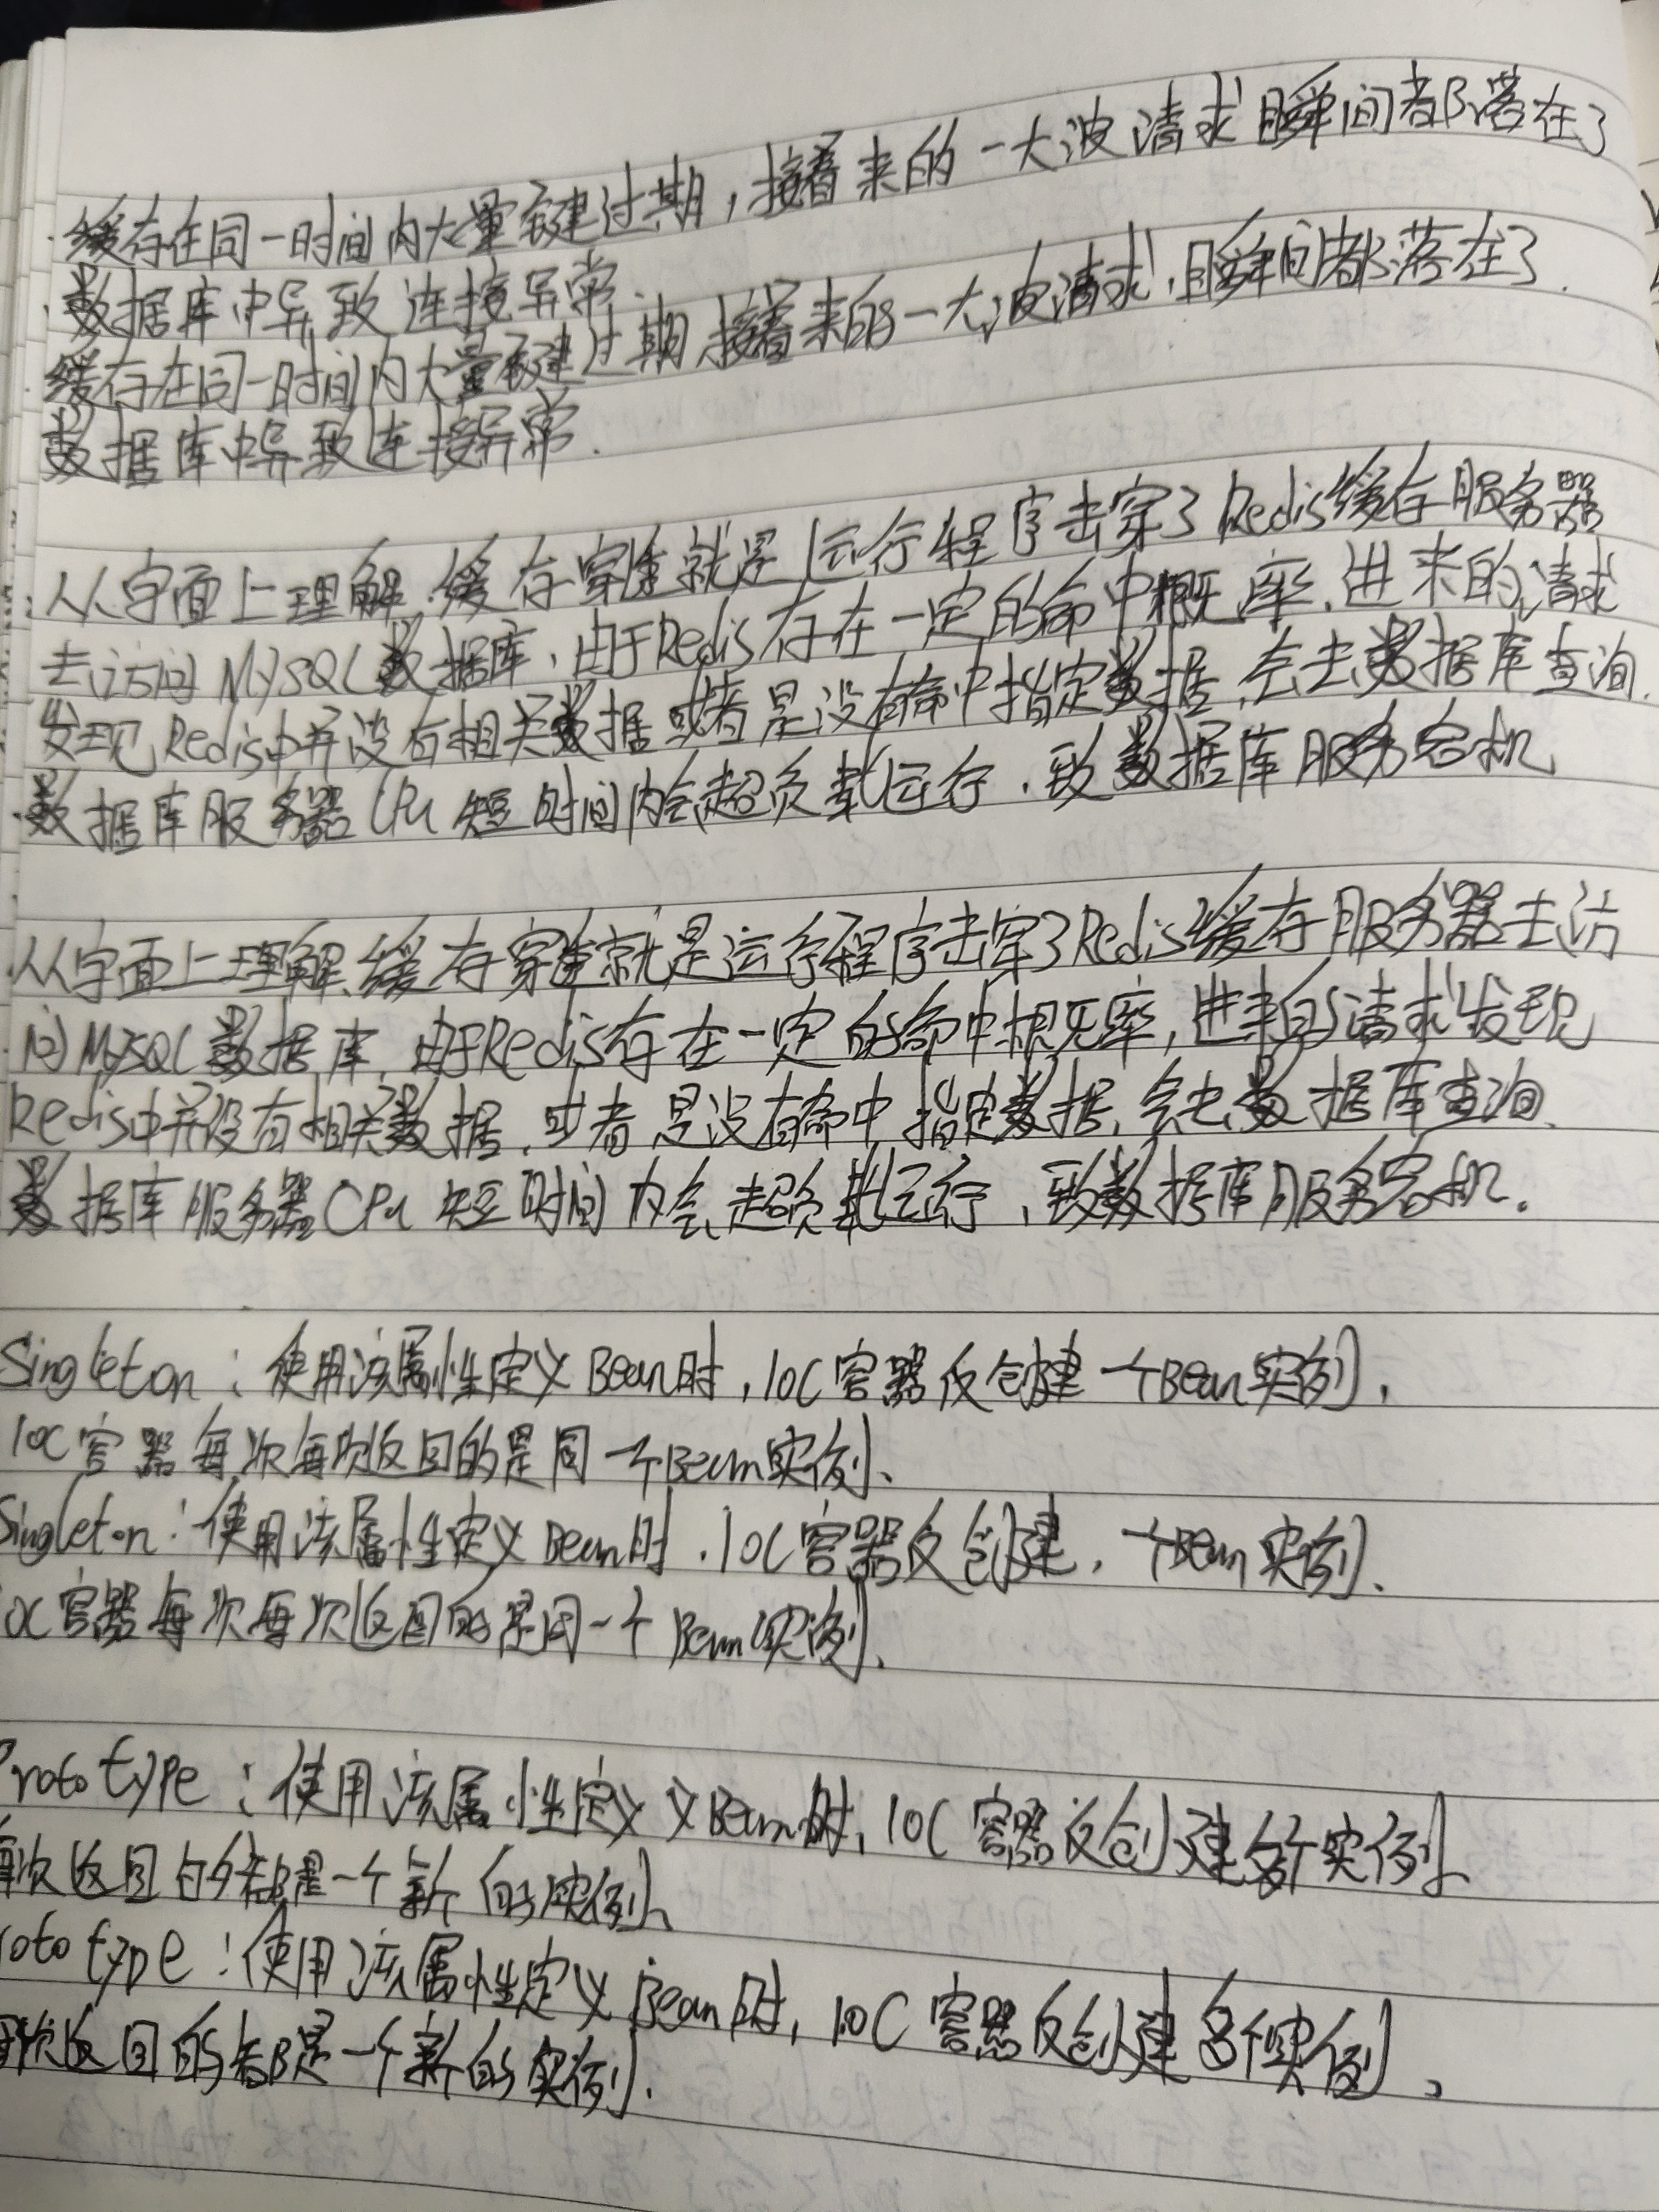 缓存在同一时间内大量键过期，接着来的一大波请求瞬间都落在了
数据库中导致连接异常.
缓存在同一时间内大量键过期,接着来的一大波请求,瞬间都落在了.
数据库中导致连接异常.
从字面上理解.缓存穿透就是运行程序击穿了Redis缓存服务器
去访问MySQL数据库,由于Redis存在一定的命中概率.进来的请求
发现Redis中并没有相关数据或者是没有命中指定数据,会去数据库查询.
数据库服务器CPu短时间内会超负载运行.致数据库服务宕机
从字面上理解.缓存穿透就是运行程序击穿了Redis缓存服务器去访
问MySQL数据库,由于Redis存在一定的命中概率,进来的请求发现
Redis中并没有相关数据,或者是没有命中指定数据,会去数据库查询.
数据库服务器CPu短时间内会超负载运行,致数据库服务宕机.
Singleton:使用该属性定义Bean时,IOC容器仅创建一个Bean实例,
IOC容器每次每次返回的是同一个Bean实例、
Singleton:使用该属性定义Bean时.IOC容器仅创建,一个Bean实例、
OC容器每次每次返回的是同一个Bean实例、
Prototype:使用该属性定义义Bean时,IOC容器仅创建多个实例、
每次返回的都是一个新的实例、
rototype:使用该属性定义Bean时,IOC容器仅创建多个实例、
每次返回的都是一个新的实例.